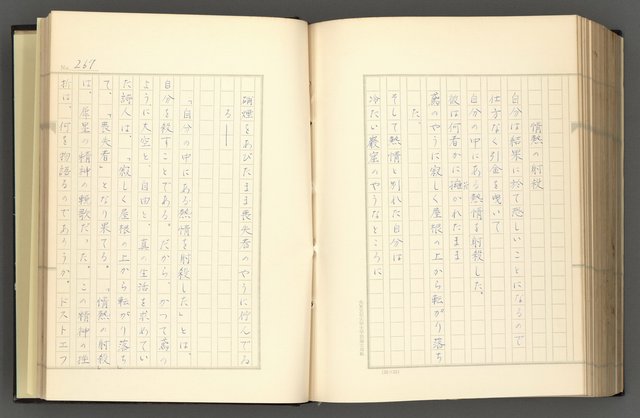 情熱の射殺
自分は結果に於て悲しいことになるので
仕方なく引金を曳いて
自分の中にある熱情を射殺した。
彼は何者かに擁かれたまま
鳶のやうに寂しく屋根の上から転がり落ち
た。
そして熱情と別れた自分は
冷たい巖窟のやうなところに
No. 267
硝煙をあびたまま喪失者のやうに佇んでゐ
る――
「自分の中にある熱情を射殺した」とは、
自分を殺すことである。だから、かつて鳶の
ように大空と、自由と、真の生活を求めてい
た詩人は、「寂しく屋根の上から転がり落ち」
て、「喪失者」となり果てる。「情熱の射殺」
は、原星の精神の輓歌だった。この精神の挫
折は、何を物語るのであろうか。ドストエフ
(20×20)